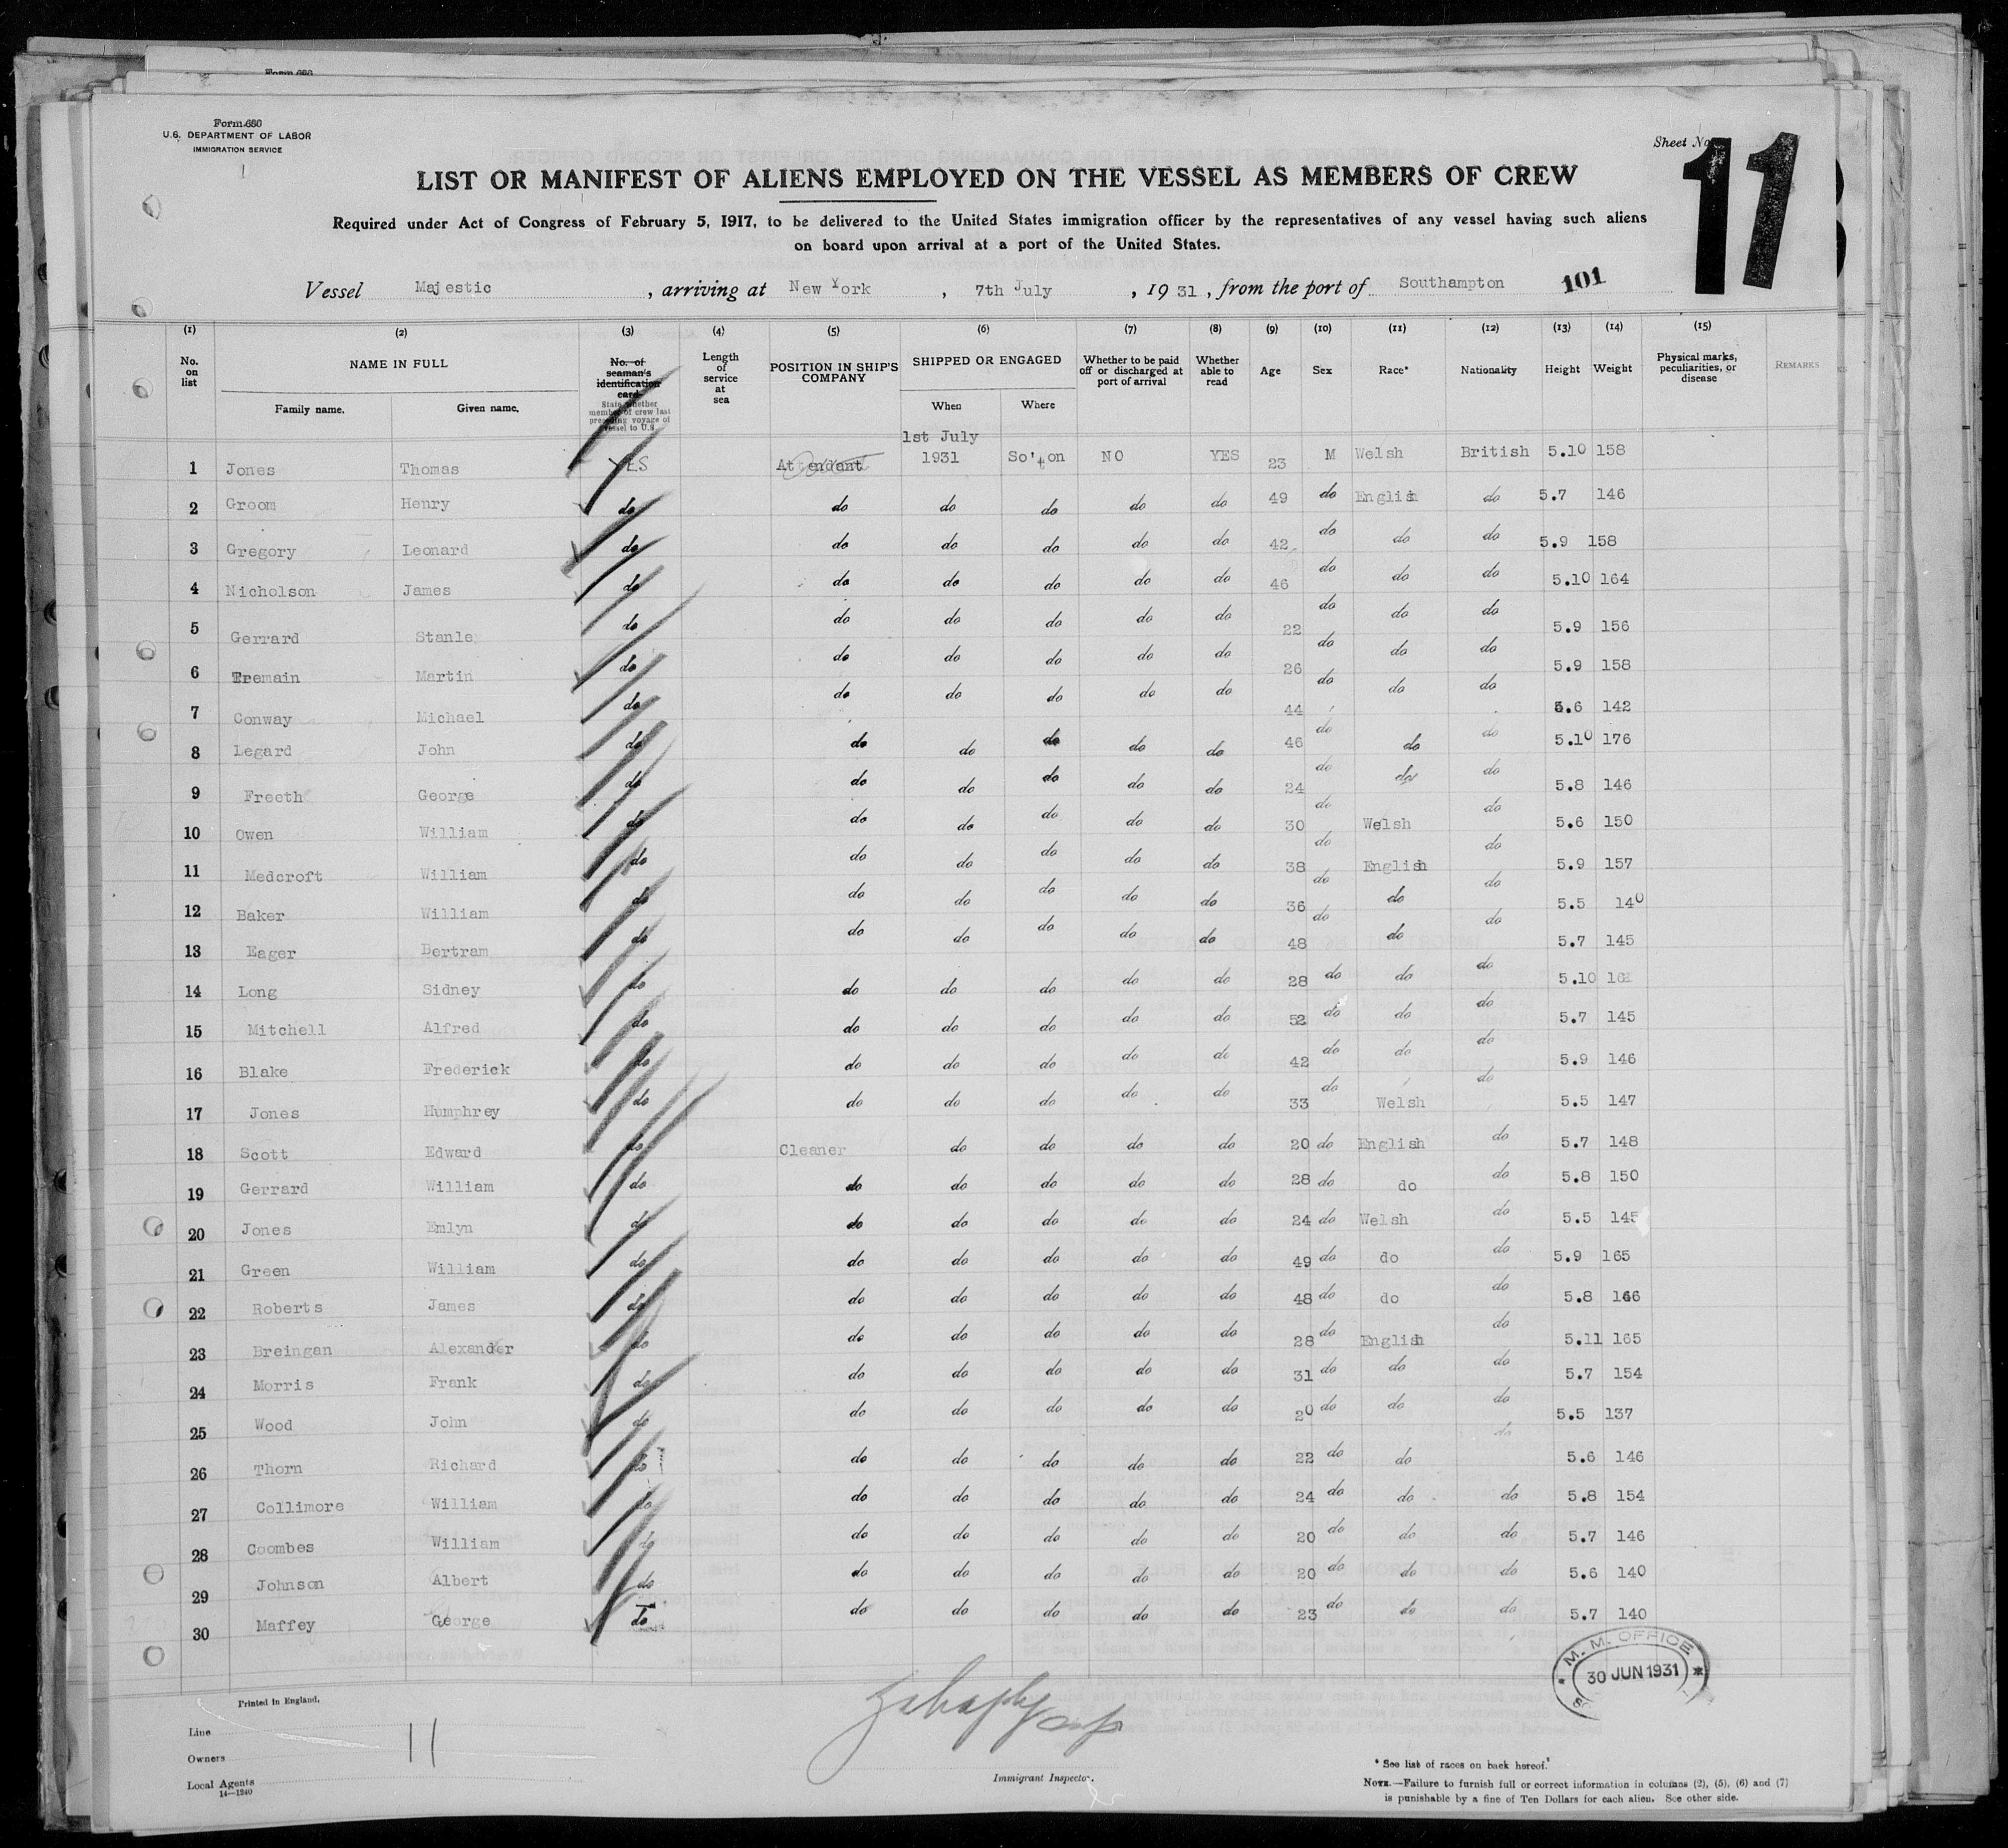 Form 680
Form 680
U.S. DEPARTMENT OF LABOR
IMMIGRATION SERVICE
Sheet No. 11
LIST OR MANIFEST OF ALIENS EMPLOYED ON THE VESSEL AS MEMBERS OF CREW
Required under Act of Congress of February 5, 1917, to be delivered to the United States immigration officer by the representatives of any vessel having such aliens
on board upon arrival at a port of the United States.
Vessel Majestic , arriving at New York , 7th July , 19 31 , from the port of Southampton 101
(1) (2) (3) (4) (5) (6) (7) (8) (9) (10) (11) (12) (13) (14) (15)
No. on list NAME IN FULL Family name. Given name. No. of seaman's identification card State whether member of crew last preceding voyage of vessel to U.S. Length of service at sea POSITION IN SHIP'S COMPANY SHIPPED OR ENGAGED When Where Whether to be paid off or discharged at port of arrival Whether able to read Age Sex Race* Nationality Height Weight Physical marks, peculiarities, or disease REMARKS
1 Jones Thomas YES Attendant 1st July 1931 So'ton NO YES 23 M Welsh British 5.10 158
2 Groom Henry do do do do do do 49 do English do 5.7 146
3 Gregory Leonard do do do do do do 42 do do do 5.9 158
4 Nicholson James do do do do do do 46 do do do 5.10 164
5 Gerrard Stanley do do do do do do 22 do do do 5.9 156
6 Tremain Martin do do do do do do 26 do do do 5.9 158
7 Conway Michael do do do do do do 44 do do do 5.6 142
8 Legard John do do do do do do 46 do do do 5.10 176
9 Freeth George do do do do do do 24 do do do 5.8 146
10 Owen William do do do do do do 30 do Welsh do 5.6 150
11 Medcroft William do do do do do do 38 do English do 5.9 157
12 Baker William do do do do do do 36 do do do 5.5 140
13 Eager Bertram do do do do do do 48 do do do 5.7 145
14 Long Sidney do do do do do do 28 do do do 5.10
15 Mitchell Alfred do do do do do do 52 do do do 5.7 145
16 Blake Frederick do do do do do do 42 do do do 5.9 146
17 Jones Humphrey do do do do do do 33 do Welsh do 5.5 147
18 Scott Edward do Cleaner do do do do 20 do English do 5.7 148
19 Gerrard William do do do do do do 28 do do do 5.8 150
20 Jones Emlyn do do do do do do 24 do Welsh do 5.5 145
21 Green William do do do do do do 49 do do do 5.9 165
22 Roberts James do do do do do do 48 do do do 5.8 166
23 Breingan Alexander do do do do do do 28 do English do 5.11 165
24 Morris Frank do do do do do do 31 do do do 5.7 154
25 Wood John do do do do do do 20 do do do 5.5 137
26 Thorn Richard do do do do do do 22 do do do 5.6 146
27 Collimore William do do do do do do 24 do do do 5.8 154
28 Coombes William do do do do do do 20 do do do 5.7 146
29 Johnson Albert do do do do do do 20 do do do 5.6 140
30 Maffey George do do do do do do 23 do do do 5.7 140
M. M. OFFICE
30 JUN 1931
Printed in England.
Line
Owners 11
Local Agents
14—1240
Immigrant Inspector.
* See list of races on back hereof.
NOTE.—Failure to furnish full or correct information in columns (2), (5), (6) and (7)
is punishable by a fine of Ten Dollars for each alien. See other side.